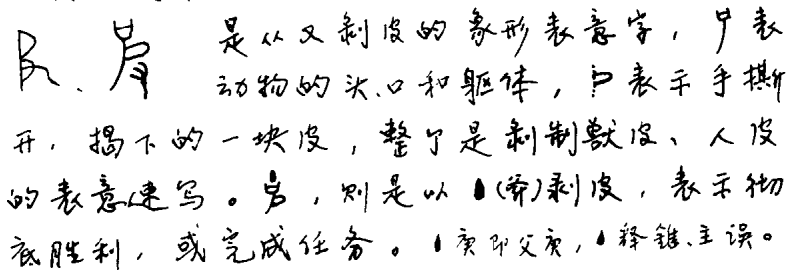 是从又剥皮的象形表意字，表
动物的头、口和躯体，表示手撕
开，揭下的一块皮，整个是剥制兽皮、人皮
的表意速写。，则是以（斧）剥皮，表示彻
底胜利，或完成任务。庚即父庚，释锥、主误。